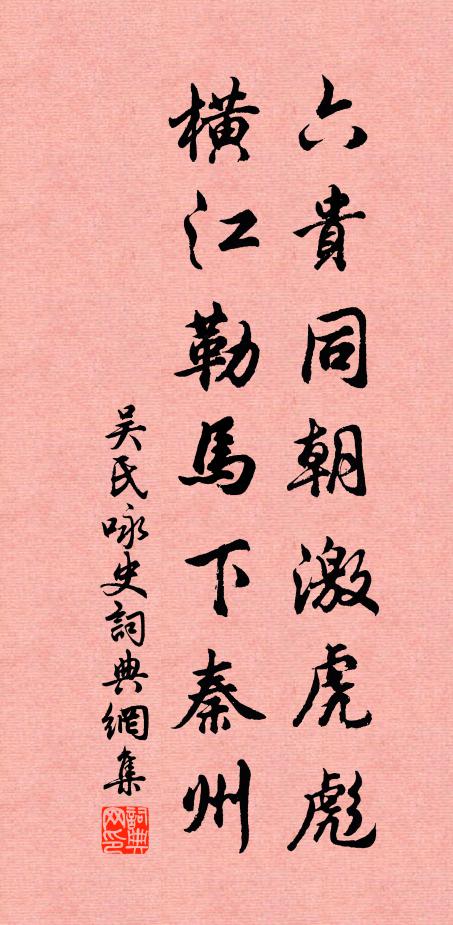 六貴同朝激虎彪
橫江勒馬下秦州
吴氏咏史詞典網集
詞典网印